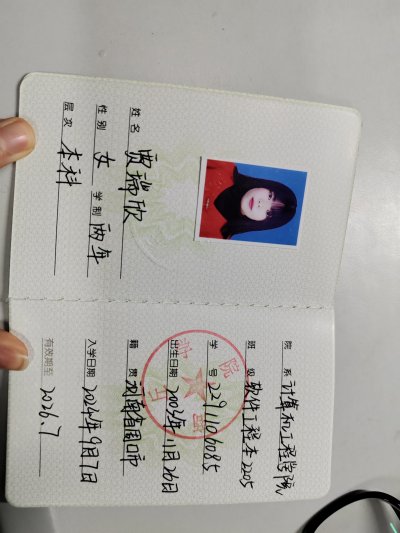 姓名 贾瑞欣
性别 女 学制 两年
层次 本科
院系 计算机工程学院
班级 软件工程本2205
学号 2291106085
出生日期 2003年11月26日
籍贯 河南省周口市
入学日期 2024年9月7日
有效期至 2026.7